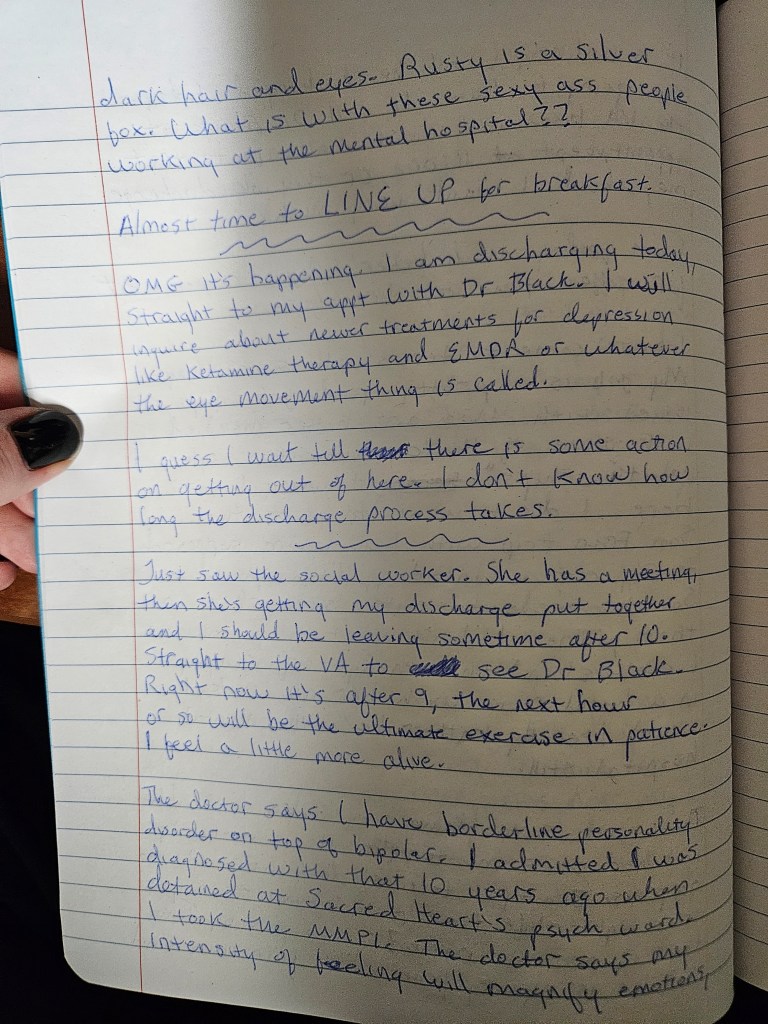 dark hair and eyes. Rusty is a silver
fox. What is with these sexy ass people
working at the mental hospital??
Almost time to LINE UP for breakfast.
OMG it's happening. I am discharging today,
straight to my appt with Dr Black. I will
inquire about newer treatments for depression
like Ketamine therapy and EMDR or whatever
the eye movement thing is called.
I guess I wait till there is some action
on getting out of here. I don't know how
long the discharge process takes.
Just saw the social worker. She has a meeting,
then she's getting my discharge put together
and I should be leaving sometime after 10.
Straight to the VA to see Dr Black.
Right now it's after 9, the next hour
or so will be the ultimate exercise in patience.
I feel a little more alive.
The doctor says I have borderline personality
disorder on top of bipolar. I admitted I was
diagnosed with that 10 years ago when
detained at Sacred Heart's psych ward.
I took the MMPI. The doctor says my
intensity of feeling will magnify emotions,